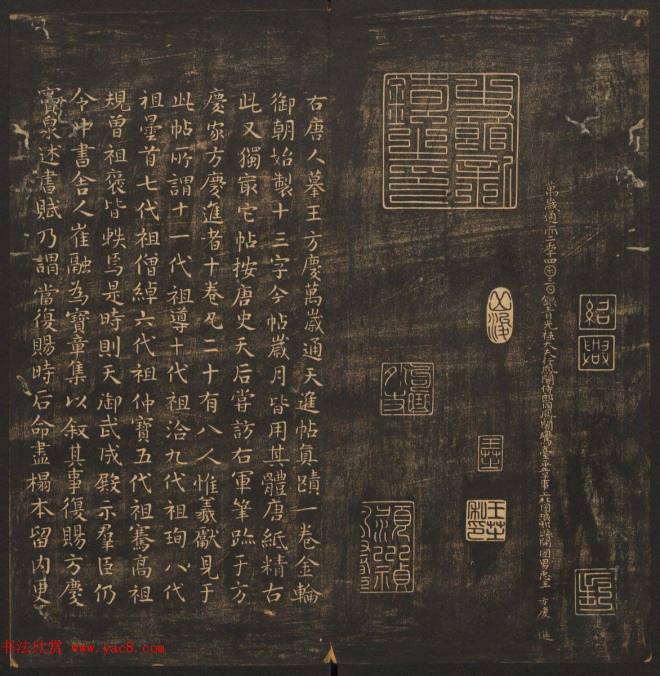 紹興
萬歲通𠀑二𠡦四囝三𡆠銀青光祿大夫行鳳閣侍郎同鳳閣鸞臺平章事上柱國琅邪縣開國男𢘑王方慶進
右唐人摹王方慶萬歲通天進帖真蹟一卷金輪
御朝始製十三字今帖歲月皆用其體唐紙精古
此又獨最它帖按唐史天后嘗訪右軍筆跡于方
慶家方慶進者十卷凡二十有八人惟羲獻見于
此帖所謂十一代祖導十代祖洽九代祖珣八代
祖曇首七代祖僧綽六代祖仲寶五代祖騫高祖
規曾祖褒皆軼焉是時則天御武成殿示羣臣仍
令中書舍人崔融為寶章集以叙其事復賜方慶
竇泉述書賦乃謂當復賜時后命盡搨本留内更
书法欣赏 www.yac8.com